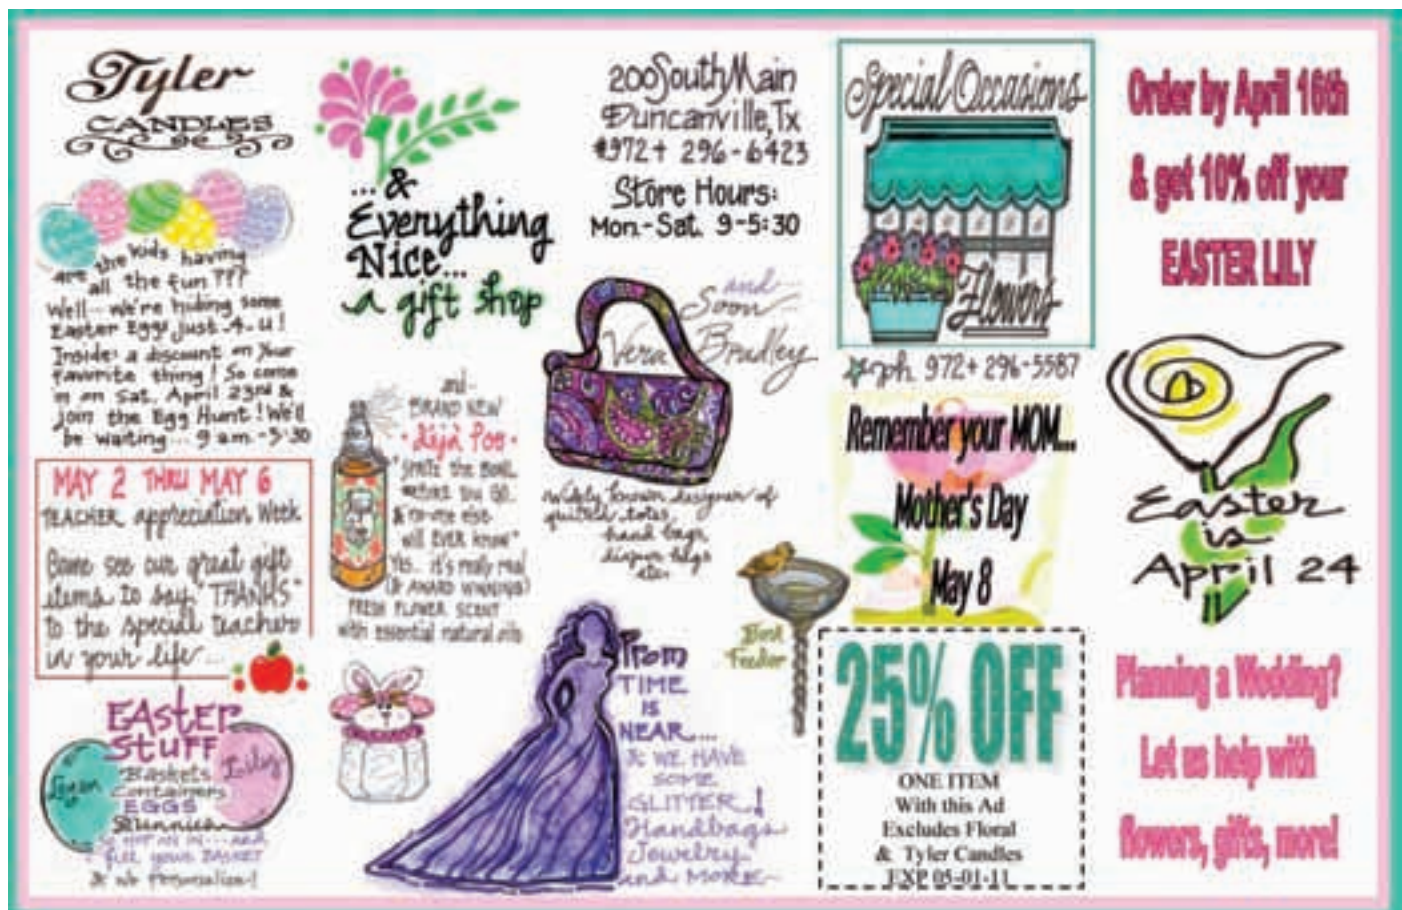 Tyler
CANDLES
are the kids having
all the fun???
Well... we're hiding some
Easter Eggs just -4- u!
Inside: a discount on your
favorite thing! So come
in on Sat. April 23rd &
join the Egg Hunt! We'll
be waiting... 9 am - 5:30
MAY 2 THRU MAY 6
TEACHER appreciation Week
Come see our great gift
items to say "THANKS"
to the special teachers
in your life...
EAStER
StUFF
Baskets
Containers
EGGS
Bunnies
Logan
Lily
fill your BASKET
& we Personalize!
...&
Everything
Nice...
a gift shop
and-
BRAND NEW
Deja Poo
"SPRITZ the BOWL
BEFORE YOU GO..
& no-one else
will EVER know"
Yes... it's really real
(& AWARD WINNING)
FRESH FLOWER SCENT
with essential natural oils
200 South Main
Duncanville, Tx
972+ 296-6423
Store Hours:
Mon.-Sat. 9-5:30
and...
Soon...
Vera Bradley
Widely known designer of
quilted totes
hand bags
diaper bags
etc.
Bird
Feeder
Prom
TIME
IS
NEAR...
& WE HAVE
SOME
GLITTER!
Handbags
Jewelry
and MORE
Special Occasions
Flowers
ph 972+ 296-5587
Remember your MOM...
Mother's Day
May 8
25% OFF
ONE ITEM
With this Ad
Excludes Floral
& Tyler Candles
EXP 05-01-11
Order by April 16th
& get 10% off your
EASTER LILY
Easter
is
April 24
Planning a Wedding?
Let us help with
flowers, gifts, more!